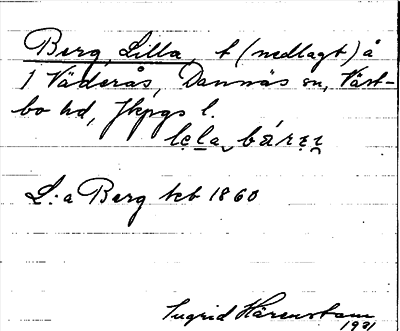 Berg, Lilla, t (nedlagt) å
1 Väderås, Dannäs sn, Väst-
bo hd, Jkpgs l.
lẹla bárẹṇ
L:a Berg tkt 1860
Ingrid Härenstam
1931